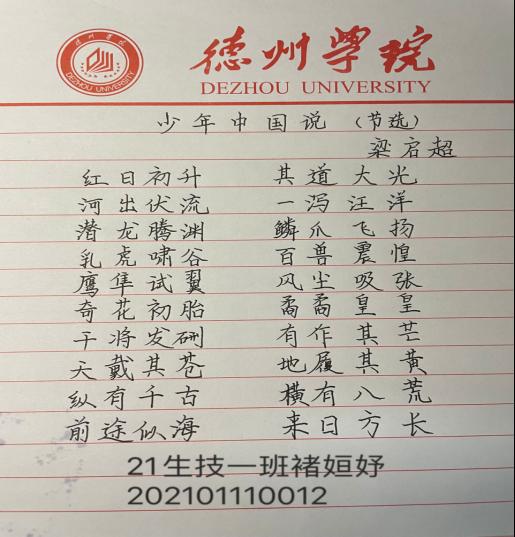 德州学院
DEZHOU UNIVERSITY
德州学院
DEZHOU UNIVERSITY
少年中国说（节选）
梁启超
红日初升 其道大光
河出伏流 一泻汪洋
潜龙腾渊 鳞爪飞扬
乳虎啸谷 百兽震惶
鹰隼试翼 风尘吸张
奇花初胎 矞矞皇皇
干将发硎 有作其芒
天戴其苍 地履其黄
纵有千古 横有八荒
前途似海 来日方长
21生技一班褚姮妤
202101110012